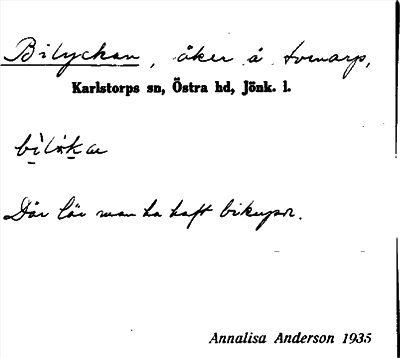 Bilyckan, åker å Svenarp,
Karlstorps sn, Östra hd, Jönk. l.
Där lär man ha haft bikupor.
Annalisa Anderson 1935